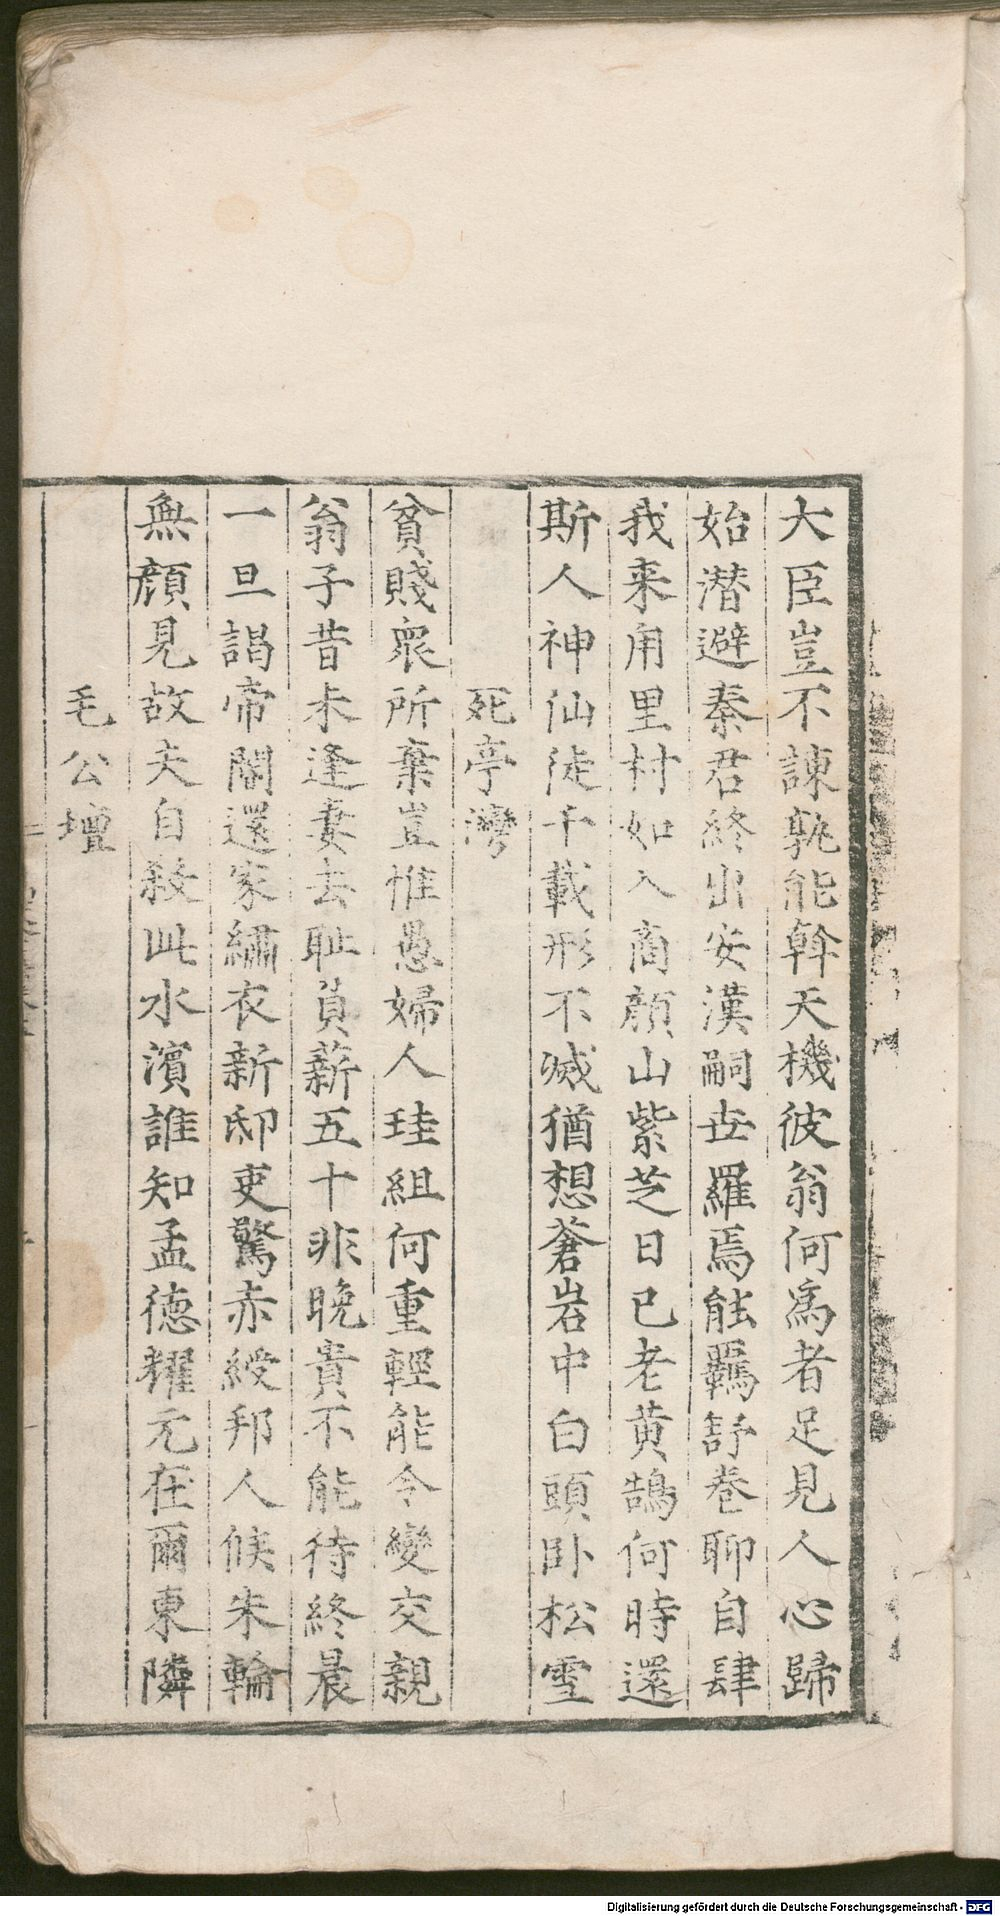 大臣豈不諌孰能斡天機彼翁何爲者足見人心歸
始潜避秦君終出安漢嗣世羅焉能羈舒卷聊自肆
我来甪里村如入商顔山紫芝日已老黄鵠何時還
斯人神仙徒千載形不滅猶想蒼岩中白頭卧松雪
死亭灣
貧賤衆所棄豈惟愚婦人珪組何重輕能令變交親
翁子昔未逢妻去耻負薪五十非晚貴不能待終晨
一旦謁帝閽還家繡衣新邸吏驚赤綬邦人候朱輪
無顔見故夫自殺此水濱誰知孟德耀元在爾東隣
毛公壇
Digitalisierung gefördert durch die Deutsche Forschungsgemeinschaft - DFG